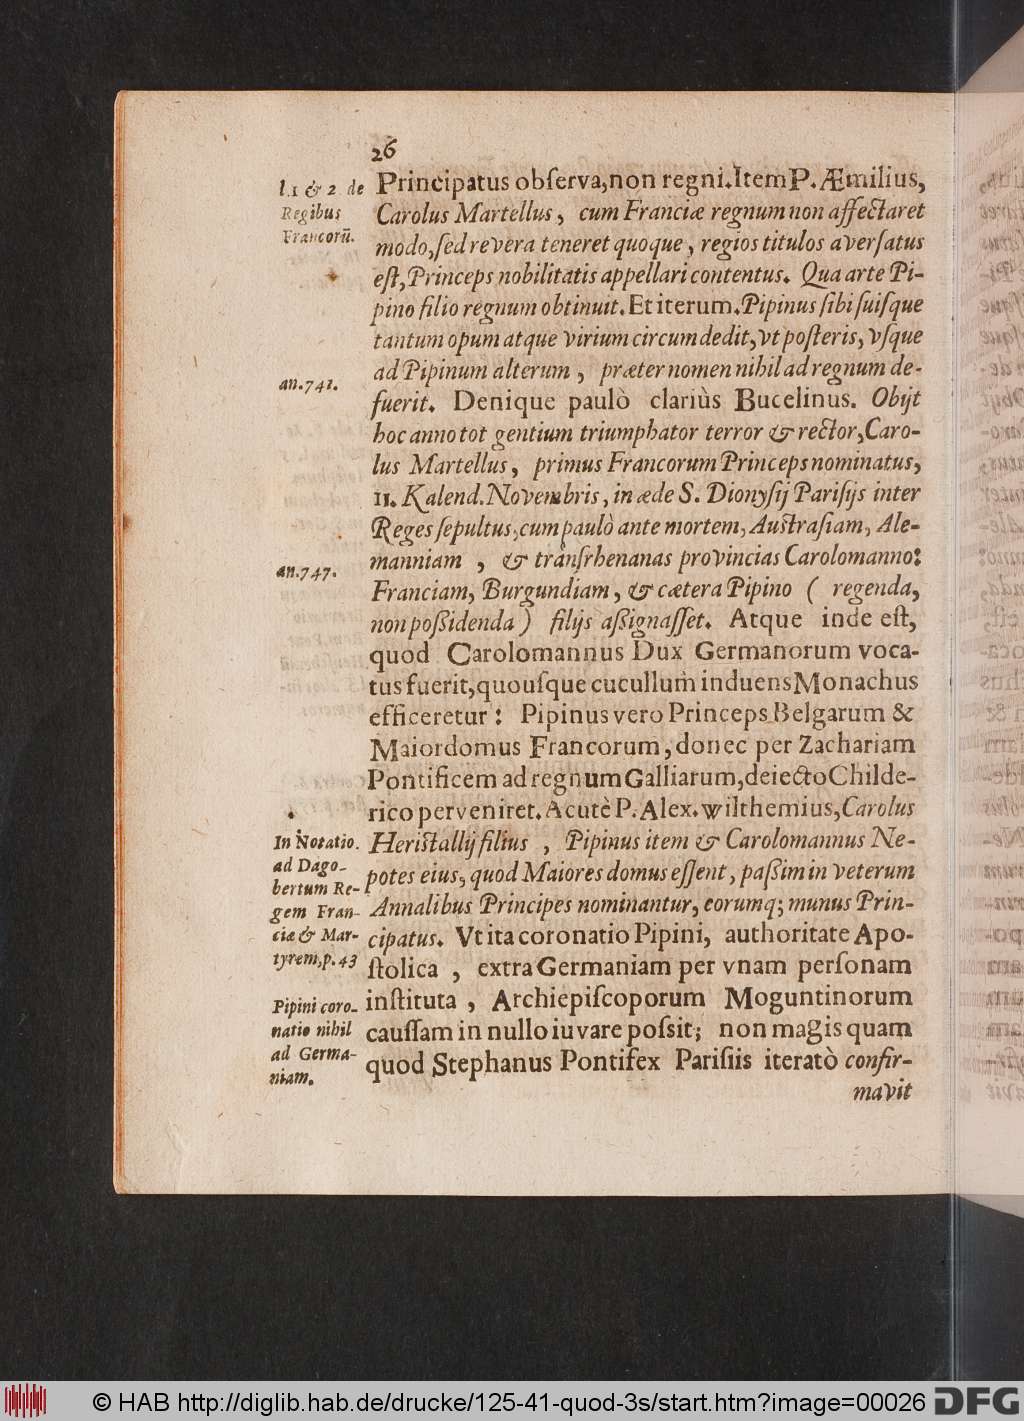 26
l.1 & 2 de
Regibus
Francorū.
Principatus obſerva,non regni.Item P. Æmilius,
Carolus Martellus, cum Franciæ regnum non affectaret
modo,ſed revera teneret quoque, regios titulos averſatus
eſt,Princeps nobilitatis appellari contentus. Qua arte Pi-
pino filio regnum obtinuit.Et iterum.Pipinus ſibi ſuiſque
tantum opum atque virium circumdedit,vt poſteris, vſque
ad Pipinum alterum, præter nomen nihil ad regnum de-
an.741.
fuerit. Denique paulò clariùs Bucelinus. Obijt
hoc anno tot gentium triumphator terror & rector,Caro-
lus Martellus, primus Francorum Princeps nominatus,
11. Kalend.Novembris, in æde S. Dionyſij Pariſijs inter
Reges ſepultus,cum paulò ante mortem, Auſtraſiam, Ale-
manniam, & tranſrhenanas provincias Carolomanno:
an.747.
Franciam, Burgundiam, & cætera Pipino ( regenda,
non poſſidenda) filijs aſſignaſſet. Atque inde eſt,
quod Carolomannus Dux Germanorum voca-
tus fuerit,quouſque cucullum induens Monachus
efficeretur: Pipinus vero Princeps Belgarum &
Maiordomus Francorum, donec per Zachariam
Pontificem ad regnum Galliarum,deiecto Childe-
rico perveniret. Acutè P. Alex. wilthemius,Carolus
In Notatio.
ad Dago-
bertum Re-
gem Fran-
ciæ & Mar-
tyrem,p.43
Heriſtallij filius, Pipinus item & Carolomannus Ne-
potes eius, quod Maiores domus eſſent, paſſim in veterum
Annalibus Principes nominantur, eorumq; munus Prin-
cipatus. Vt ita coronatio Pipini, authoritate Apo-
ſtolica, extra Germaniam per vnam perſonam
Pipini coro-
natio nihil
ad Germa-
niam.
inſtituta, Archiepiſcoporum Moguntinorum
cauſſam in nullo iuvare poſſit; non magis quam
quod Stephanus Pontifex Pariſiis iteratò confir-
mavit
© HAB http://diglib.hab.de/drucke/125-41-quod-3s/start.htm?image=00026
DFG